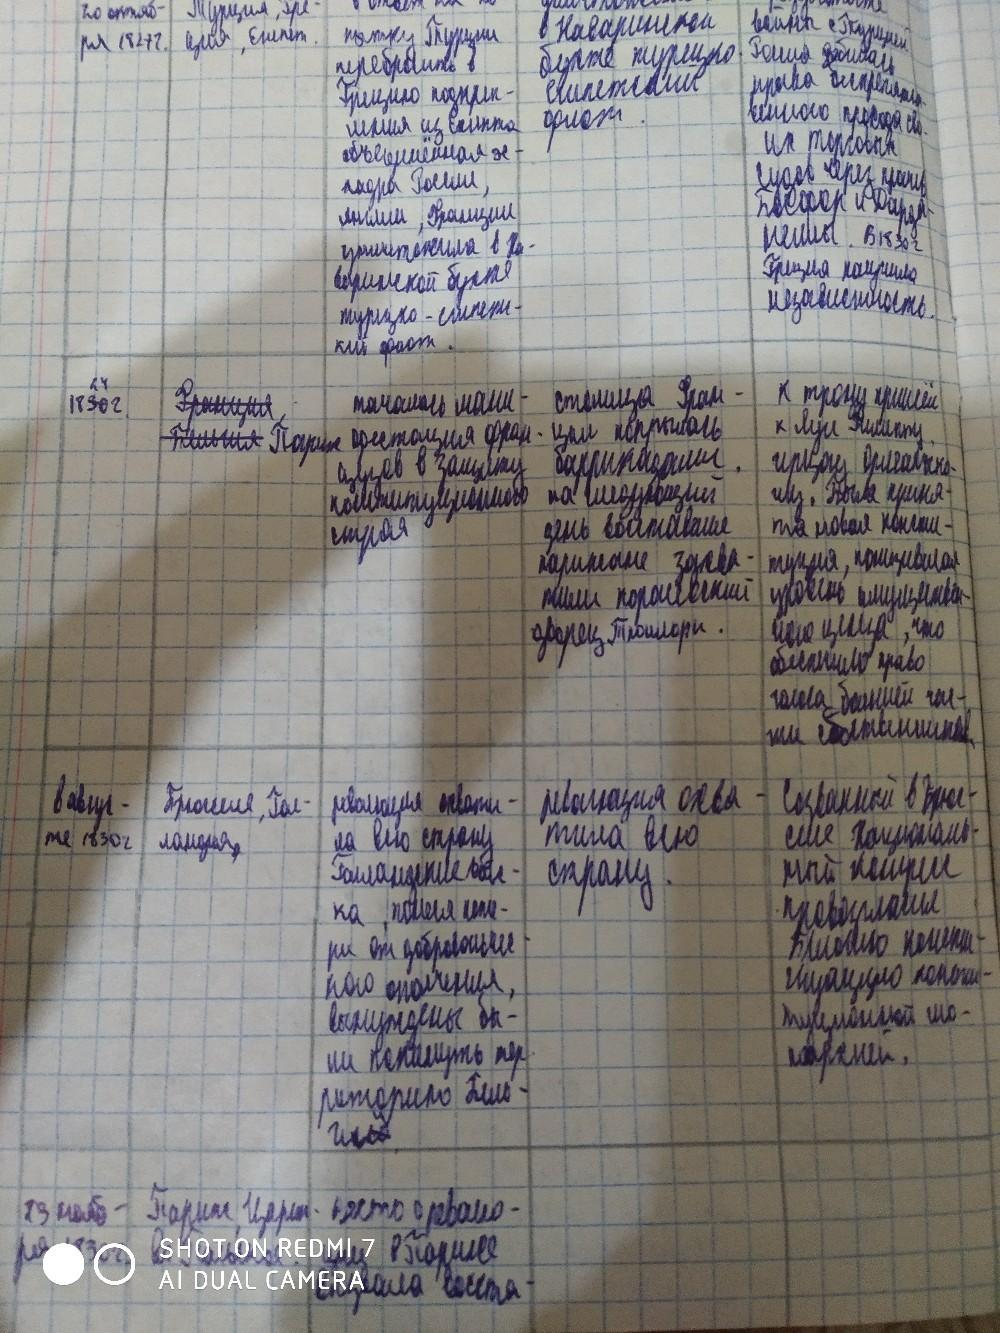 20 октяб-
ря 1827г.
Турция, Гре-
ция, Египет.
Турции
перебросить в
Грецию подкреп-
ления из Египта
объединённая эс-
кадра России,
Англии, Франции
уничтожила в На-
варинской бухте
турецко-египетс-
кий флот.
в Наваринской
бухте турецко
египетский
флот.
войны с Турцией
Россия добилась
права беспрепятс-
твенного прохода сво-
их торговых
судов через пролив
Босфор и Дарда-
неллы. В 1830г
Греция получила
независимость.
1830г.
Франция,
Париж
началась мани-
фран-
цузов в защиту
конституционного
строя
столица Фран-
ции покрылась
баррикадами.
на следующий
день восставшие
парижане захва-
тили королевский
дворец Тюильри.
к трону пришёл
к Луи Филиппу
Была приня-
та новая консти-
туция, понизившая
уровень имуществен-
ного ценза, что
право
голоса большей час-
ти
в авгус-
те 1830г
Гол-
ландия,
революция охвати-
ла всю страну
Голландские войс-
ка,
ри от добровольчес-
кого ополчения,
вынуждены бы-
ли покинуть тер-
риторию Бель-
революция охва-
тила всю
страну.
Созванный в Брюс-
селе Националь-
ный конгресс
провозгласил
Бельгию консти-
туционной мо-
нархией.
29 нояб-
ря 1830г.
Париж, Царст-
в Париже
восста-
SHOT ON REDMI 7
AI DUAL CAMERA